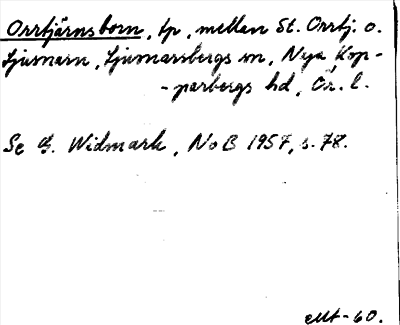 Orrtjärnsborn, tp, mellan St. Orrtj. o.
Ljusnarn, Ljusnarsbergs sn, Nya Kop-
-parbergs hd, Ör. l.
Se G. Widmark, NoB 1957, s. 78.
-60.